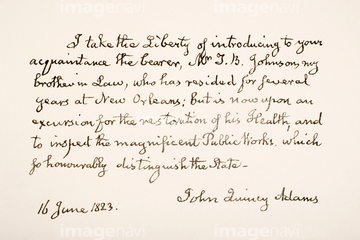 I take the Liberty of introducing to your
acquaintance the bearer, Mr T. B. Johnson, my
brother in Law, who has resided for several
years at New Orleans; but is now upon an
excursion for the restoration of his Health, and
to inspect the magnificent Public Works, which
so honourably distinguish the State-
John Quincy Adams
16 June 1823.
imagenavi
imagenavi
imagenavi
imagenavi